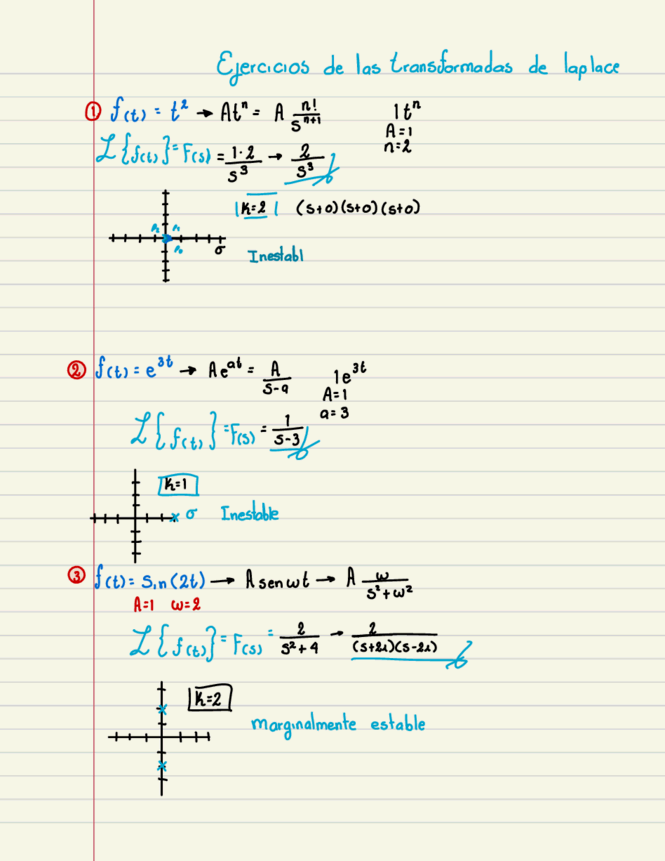 Ejercicios de las transformadas de laplace
① f(t) = t² → Atⁿ = A n!/sⁿ⁺¹ 1tⁿ
A=1
n=2
ℒ{f(t)} = F(s) = 1·2/s³ → 2/s³
K=2 (s+0)(s+0)(s+0)
σ
Inestabl
② f(t) = e³ᵗ → Aeᵃᵗ = A/s-a 1e³ᵗ
A=1
a=3
ℒ{f(t)} = F(s) = 1/s-3
K=1
σ Inestable
③ f(t) = Sin(2t) → A sen wt → A w/s²+w²
A=1 w=2
ℒ{f(t)} = F(s) = 2/s²+4 → 2/(s+2i)(s-2i)
K=2
marginalmente estable